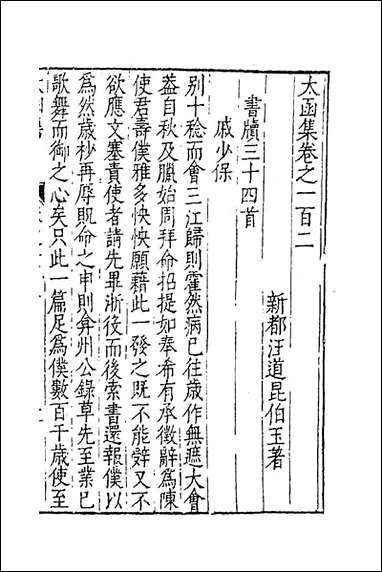 太函集卷之一百二
新都汪道昆伯玉著
書牘三十四首
戚少保
别十稔而會三江歸則霍然病已往歲作無遮大會
葢自秋及臘始周拜命招提如奉希有承徵辭為陳
使君壽僕雅多怏怏願藉此一發之既不能辤又不
欲應文塞責使者請先畢浙役而後索書還報僕以
為然歲杪再辱貺命之申則弇州公錄草先至業已
歌舞而御之心矣只此一篇足為僕數百千歲使至